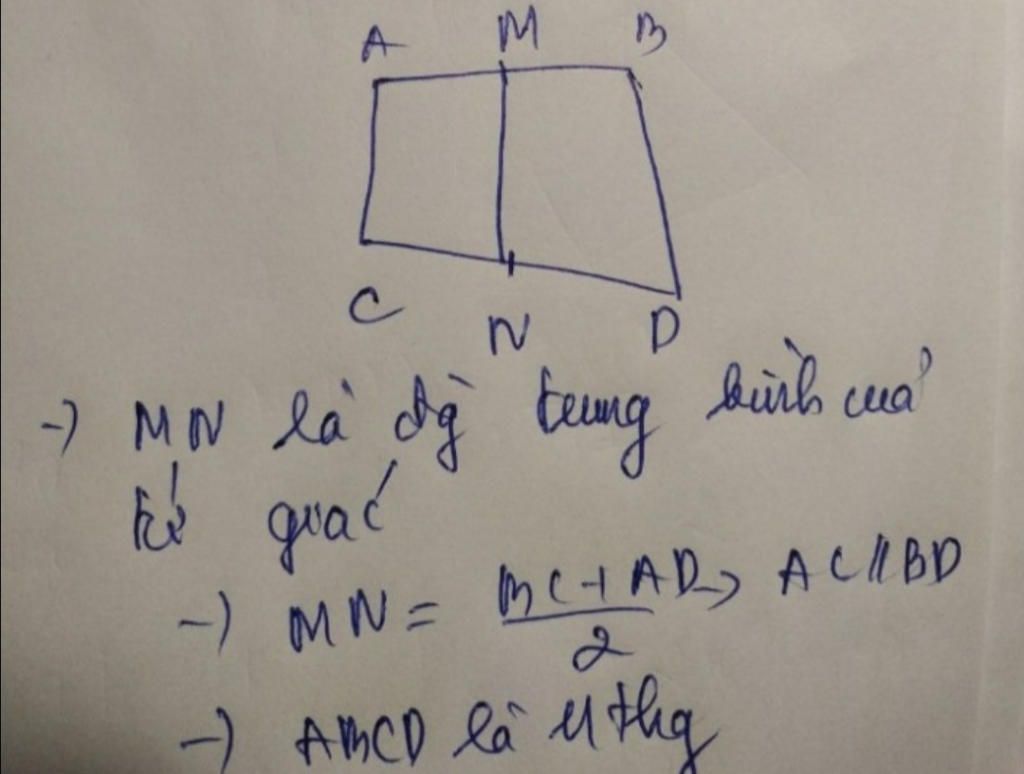 A M B
C N D
-) MN là đg̀ trung bình của
tứ giác
-) MN = BC + AD / 2 -> AC // BD
-) ABCD là thg